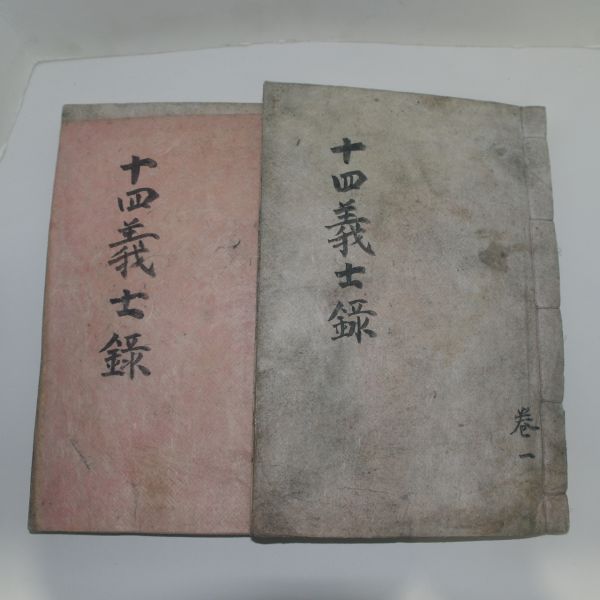 十四義士錄
十四義士錄
卷一